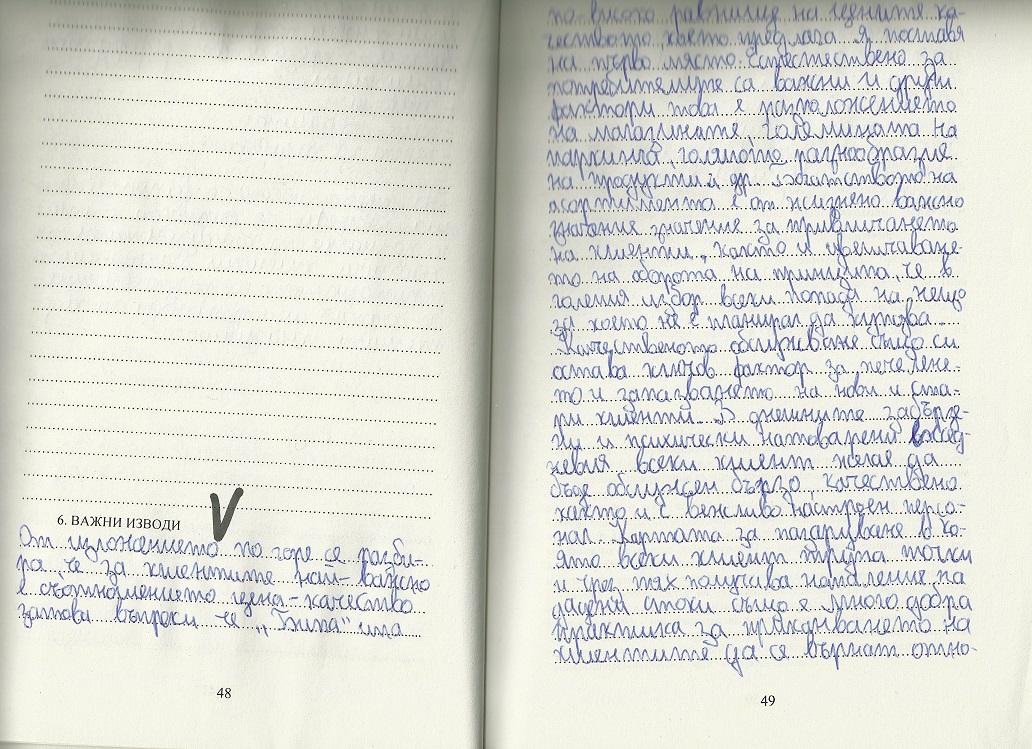 6. ВАЖНИ ИЗВОДИ
От изложението по горе се разби-
ра, че за клиентите най-важно
е съотношението цена-качество
затова въпреки че „Била" има
48
по високо равнище на цените ка-
чеството което предлага я поставя
на първо място. Естествено за
потребителите са важни и други
фактори това е разположението
на магазините, големината на
паркинга, голямото разнообразие
на продукти и др. Богатството на
асортимента е от жизнено важно
значение значение за привличането
на клиенти, както и увеличаване-
то на оборота на принципа, че в
големия избор всеки попада на нещо
за което не е планирал да купува.
Качественото обслужване също си
остава ключов фактор за печелене-
то и запазването на нови и ста-
ри клиенти. В днешните забърза-
ни и психически натоварени всекид-
невия всеки клиент желае да
бъде обслужен бързо, качествено
както и с вежливо настроен персо-
нал. Картата за пазаруване в ко-
ято всеки клиент трупа точки
и чрез тях получава намаление на
дадени стоки също е много добра
практика за предизвикването на
клиентите да се върнат отно-
49